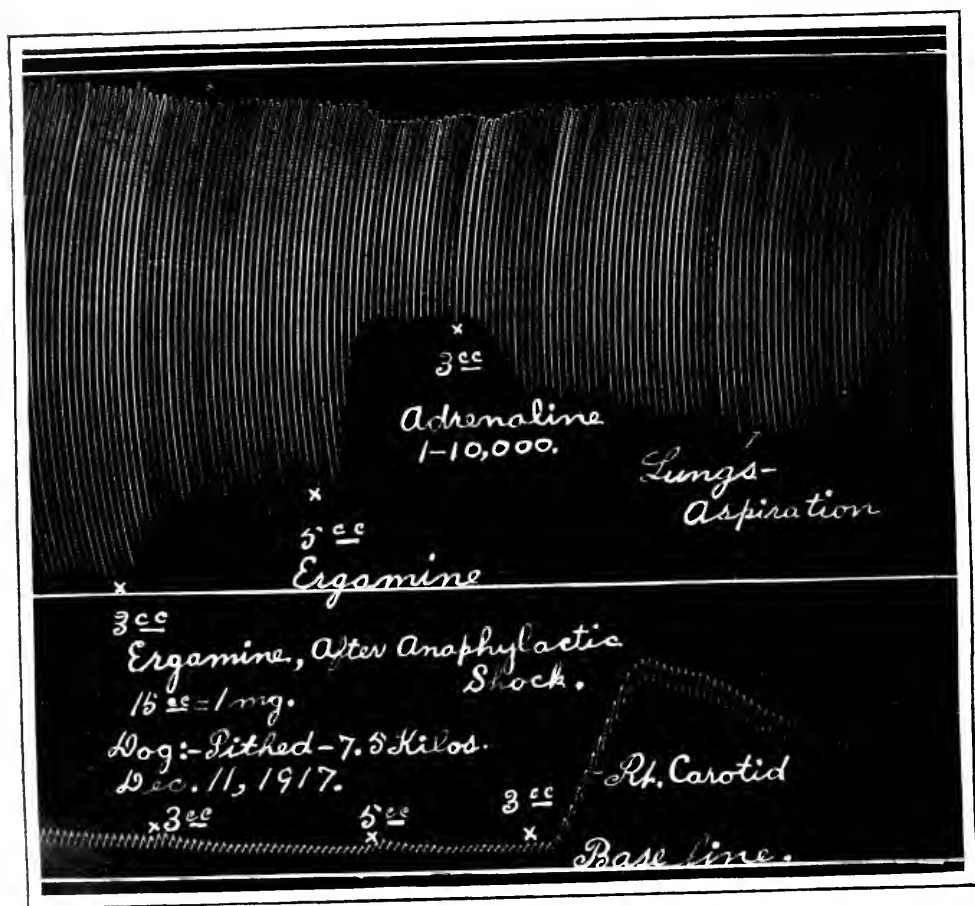 3 cc
Adrenaline
1-10,000.
Lungs-
Aspiration
5 cc
Ergamine
3 cc
Ergamine, After Anaphylactic
Shock.
15 cc = 1 mg.
Dog:-Pithed-7.5 Kilos.
Dec. 11, 1917.
Rt. Carotid
3 cc
5 cc
3 cc
Base line.